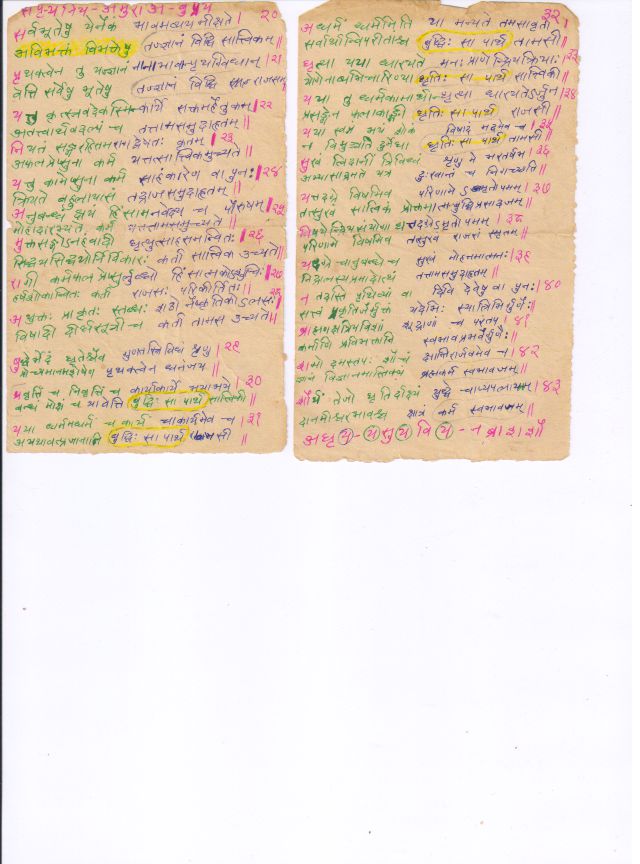 सर्वभूतेषु येनैकं भावमव्ययमीक्षते । २०
अविभक्तं विभक्तेषु तज्ज्ञानं विद्धि सात्त्विकम् ॥
पृथक्त्वेन तु यज्ज्ञानं नानाभावान्पृथग्विधान् । २१
वेत्ति सर्वेषु भूतेषु तज्ज्ञानं विद्धि राजसम् ॥
यत्तु कृत्स्नवदेकस्मिन्कार्ये सक्तमहैतुकम् । २२
अतत्त्वार्थवदल्पं च तत्तामसमुदाहृतम् ॥
नियतं सङ्गरहितमरागद्वेषतः कृतम् । २३
अफलप्रेप्सुना कर्म यत्तत्सात्त्विकमुच्यते ॥
यत्तु कामेप्सुना कर्म साहंकारेण वा पुनः । २४
क्रियते बहुलायासं तद्राजसमुदाहृतम् ॥
अनुबन्धं क्षयं हिंसामनवेक्ष्य च पौरुषम् । २५
मोहादारभ्यते कर्म यत्तत्तामसमुच्यते ॥
मुक्तसङ्गोऽनहंवादी धृत्युत्साहसमन्वितः । २६
सिद्ध्यसिद्ध्योर्निर्विकारः कर्ता सात्त्विक उच्यते ॥
रागी कर्मफलप्रेप्सुर्लुब्धो हिंसात्मकोऽशुचिः । २७
हर्षशोकान्वितः कर्ता राजसः परिकीर्तितः ॥
अयुक्तः प्राकृतः स्तब्धः शठो नैष्कृतिकोऽलसः । २८
विषादी दीर्घसूत्री च कर्ता तामस उच्यते ॥
बुद्धेर्भेदं धृतेश्चैव गुणतस्त्रिविधं शृणु । २९
प्रोच्यमानमशेषेण पृथक्त्वेन धनंजय ॥
प्रवृत्तिं च निवृत्तिं च कार्याकार्ये भयाभये । ३०
बन्धं मोक्षं च या वेत्ति बुद्धिः सा पार्थ सात्त्विकी ॥
यया धर्ममधर्मं च कार्यं चाकार्यमेव च । ३१
अयथावत्प्रजानाति बुद्धिः सा पार्थ राजसी ॥
३२
अधर्मं धर्ममिति या मन्यते तमसावृता ।
सर्वार्थान्विपरीतांश्च बुद्धिः सा पार्थ तामसी ॥
धृत्या यया धारयते मनःप्राणेन्द्रियक्रियाः । ३३
योगेनाव्यभिचारिण्या धृतिः सा पार्थ सात्त्विकी ॥
यया तु धर्मकामार्थान्धृत्या धारयतेऽर्जुन । ३४
प्रसङ्गेन फलाकाङ्क्षी धृतिः सा पार्थ राजसी ॥
यया स्वप्नं भयं शोकं विषादं मदमेव च । ३५
न विमुञ्चति दुर्मेधा धृतिः सा पार्थ तामसी ॥
सुखं त्विदानीं त्रिविधं शृणु मे भरतर्षभ । ३६
अभ्यासाद्रमते यत्र दुःखान्तं च निगच्छति ॥
यत्तदग्रे विषमिव परिणामेऽमृतोपमम् । ३७
तत्सुखं सात्त्विकं प्रोक्तमात्मबुद्धिप्रसादजम् ॥
विषयेन्द्रियसंयोगाद्यत्तदग्रेऽमृतोपमम् । ३८
परिणामे विषमिव तत्सुखं राजसं स्मृतम् ॥
यदग्रे चानुबन्धे च सुखं मोहनमात्मनः । ३९
निद्रालस्यप्रमादोत्थं तत्तामसमुदाहृतम् ॥
न तदस्ति पृथिव्यां वा दिवि देवेषु वा पुनः । ४०
सत्त्वं प्रकृतिजैर्मुक्तं यदेभिः स्यात्त्रिभिर्गुणैः ॥
ब्राह्मणक्षत्रियविशां शूद्राणां च परंतप । ४१
कर्माणि प्रविभक्तानि स्वभावप्रभवैर्गुणैः ॥
शमो दमस्तपः शौचं क्षान्तिरार्जवमेव च । ४२
ज्ञानं विज्ञानमास्तिक्यं ब्रह्मकर्म स्वभावजम् ॥
शौर्यं तेजो धृतिर्दाक्ष्यं युद्धे चाप्यपलायनम् । ४३
दानमीश्वरभावश्च क्षात्रं कर्म स्वभावजम् ॥
अधृय - यसुय विय - न ब्राशशौ